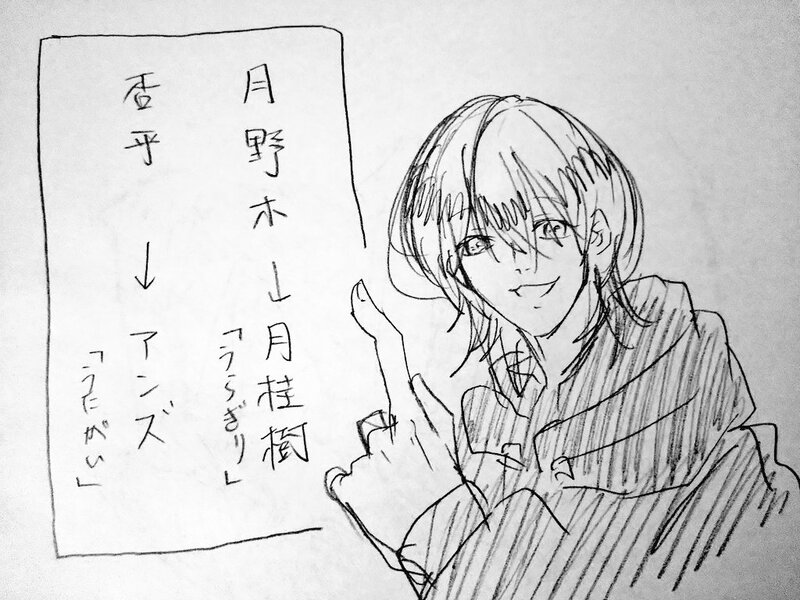 月野木→月桂樹
「うらぎり」
杏平→アンズ
「うたがい」